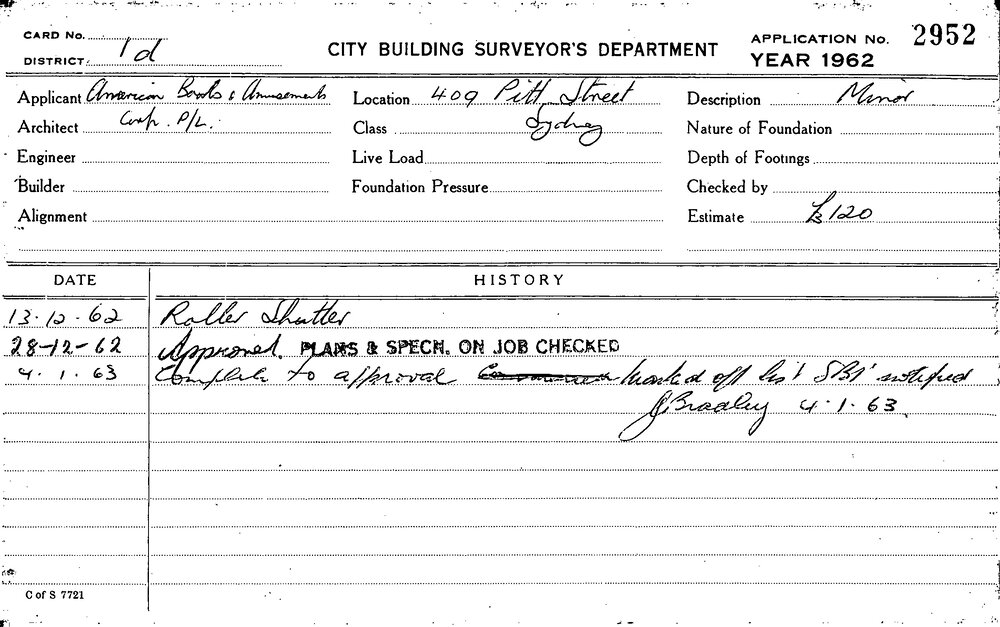 CARD No.
DISTRICT. 1d
CITY BUILDING SURVEYOR'S DEPARTMENT
APPLICATION No. 2952
YEAR 1962
Applicant American Books & Amusements Location 409 Pitt Street Description Minor
Architect Corp. P/L. Class Sydney Nature of Foundation
Engineer Live Load Depth of Footings
Builder Foundation Pressure Checked by
Alignment Estimate £120
DATE HISTORY
13.12.62 Roller Shutter
28-12-62 Approved. PLANS & SPECN. ON JOB CHECKED
4.1.63 Complete to approval marked off list SBI notified
J Bradley 4.1.63.
C of S 7721